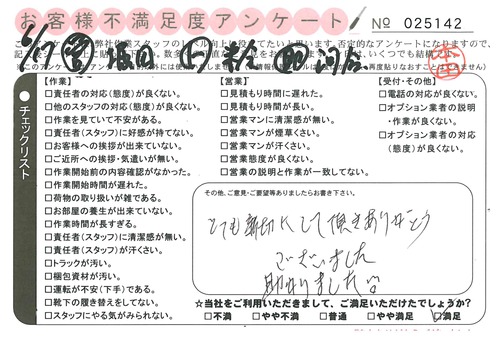 お客様不満足度アンケート
№ 025142
【作業】
□責任者の対応(態度)が良くない。
□他のスタッフの対応(態度)が良くない。
□作業を見ていて不安がある。
□責任者(スタッフ)に好感が持てない。
□お客様への挨拶が出来ていない。
□ご近所への挨拶・気遣いが無い。
□作業開始前の内容確認がなかった。
□作業開始時間が遅れた。
□荷物の取り扱いが雑である。
□お部屋の養生が出来ていない。
□作業時間が長すぎる。
□責任者(スタッフ)に清潔感が無い。
□責任者(スタッフ)が汗くさい。
□トラックが汚い。
□梱包資材が汚い。
□運転が不安(下手)である。
□靴下の履き替えをしてない。
□スタッフにやる気がみられない。
【営業】
□見積もり時間に遅れた。
□見積もり時間が長い。
□営業マンに清潔感が無い。
□営業マンが煙草くさい。
□営業マンが汗くさい。
□営業態度が良くない。
□営業の説明と作業が一致してない。
【受付・その他】
□電話の対応が良くない。
□オプション業者の説明
・作業が良くない。
□オプション業者の対応
(態度)が良くない。
チェックリスト
その他、ご意見・ご要望等ありましたらお書き下さい。
とても親切にして頂きありがとう
ございました
助かりました
☆当社をご利用いただきまして、ご満足いただけたでしょうか?
□不満 □やや不満 □普通 □やや満足 □満足